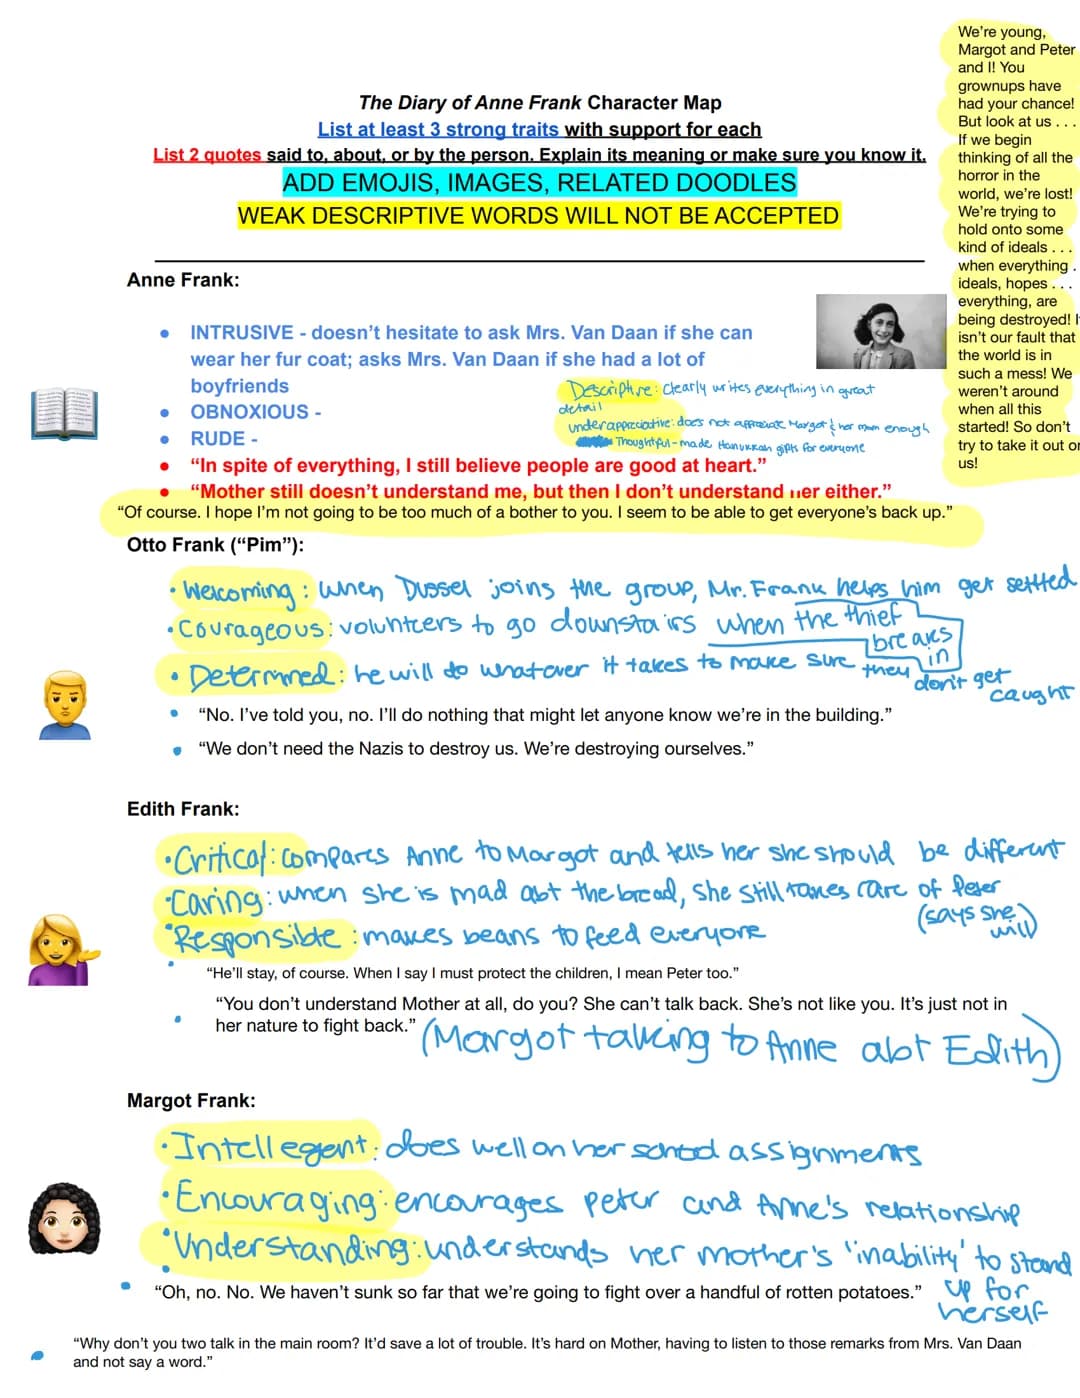 The Diary of Anne Frank Character Map
List at least 3 strong traits with support for each
List 2 quotes said to, about, or by the person. Explain its meaning or make sure you know it.
ADD EMOJIS, IMAGES, RELATED DOODLES
WEAK DESCRIPTIVE WORDS WILL NOT BE ACCEPTED
We're young,
Margot and Peter
and I! You
grownups have
had your chance!
But look at us . . .
If we begin
thinking of all the
horror in the
world, we're lost!
We're trying to
hold onto some
kind of ideals . . .
when everything .
ideals, hopes . . .
everything, are
being destroyed! I
isn't our fault that
the world is in
such a mess! We
weren't around
when all this
started! So don't
try to take it out on
us!
Anne Frank:
• INTRUSIVE - doesn't hesitate to ask Mrs. Van Daan if she can
wear her fur coat; asks Mrs. Van Daan if she had a lot of
boyfriends
• OBNOXIOUS -
• RUDE -
Descriptive: Clearly writes everything in great
detail
underappreciative: does not appreciate Margot & her mom enough
Thoughtful - made Hanukkah gifts for everyone
• "In spite of everything, I still believe people are good at heart."
• "Mother still doesn't understand me, but then I don't understand her either."
"Of course. I hope I'm not going to be too much of a bother to you. I seem to be able to get everyone's back up."
Otto Frank ("Pim"):
• Welcoming: when Dussel joins the group, Mr. Frank helps him get settled
• Courageous: volunteers to go downstairs when the thief
breaks
in
• Determined: he will do whatever it takes to make sure they don't get
caught
• "No. I've told you, no. I'll do nothing that might let anyone know we're in the building."
• "We don't need the Nazis to destroy us. We're destroying ourselves."
Edith Frank:
• Critical: compares Anne to Margot and tells her she should be different
• Caring: when she is mad abt the bread, she still takes care of Peter
(says she
will)
• Responsible: makes beans to feed everyone
• "He'll stay, of course. When I say I must protect the children, I mean Peter too."
• "You don't understand Mother at all, do you? She can't talk back. She's not like you. It's just not in
her nature to fight back." (Margot talking to Anne abt Edith)
Margot Frank:
• Intellegent: does well on her school assignments
• Encouraging: encourages Peter and Anne's relationship
• Understanding: understands her mother's 'inability' to stand
up for
herself
• "Oh, no. No. We haven't sunk so far that we're going to fight over a handful of rotten potatoes."
• "Why don't you two talk in the main room? It'd save a lot of trouble. It's hard on Mother, having to listen to those remarks from Mrs. Van Daan
and not say a word."